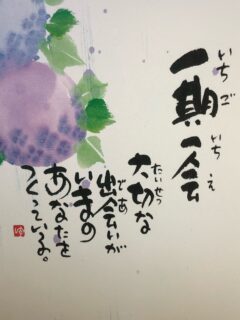 いちごいちえ
一期一会
たいせつ
大切な
であ
出会いが
いまの
あなたを
つくっている。